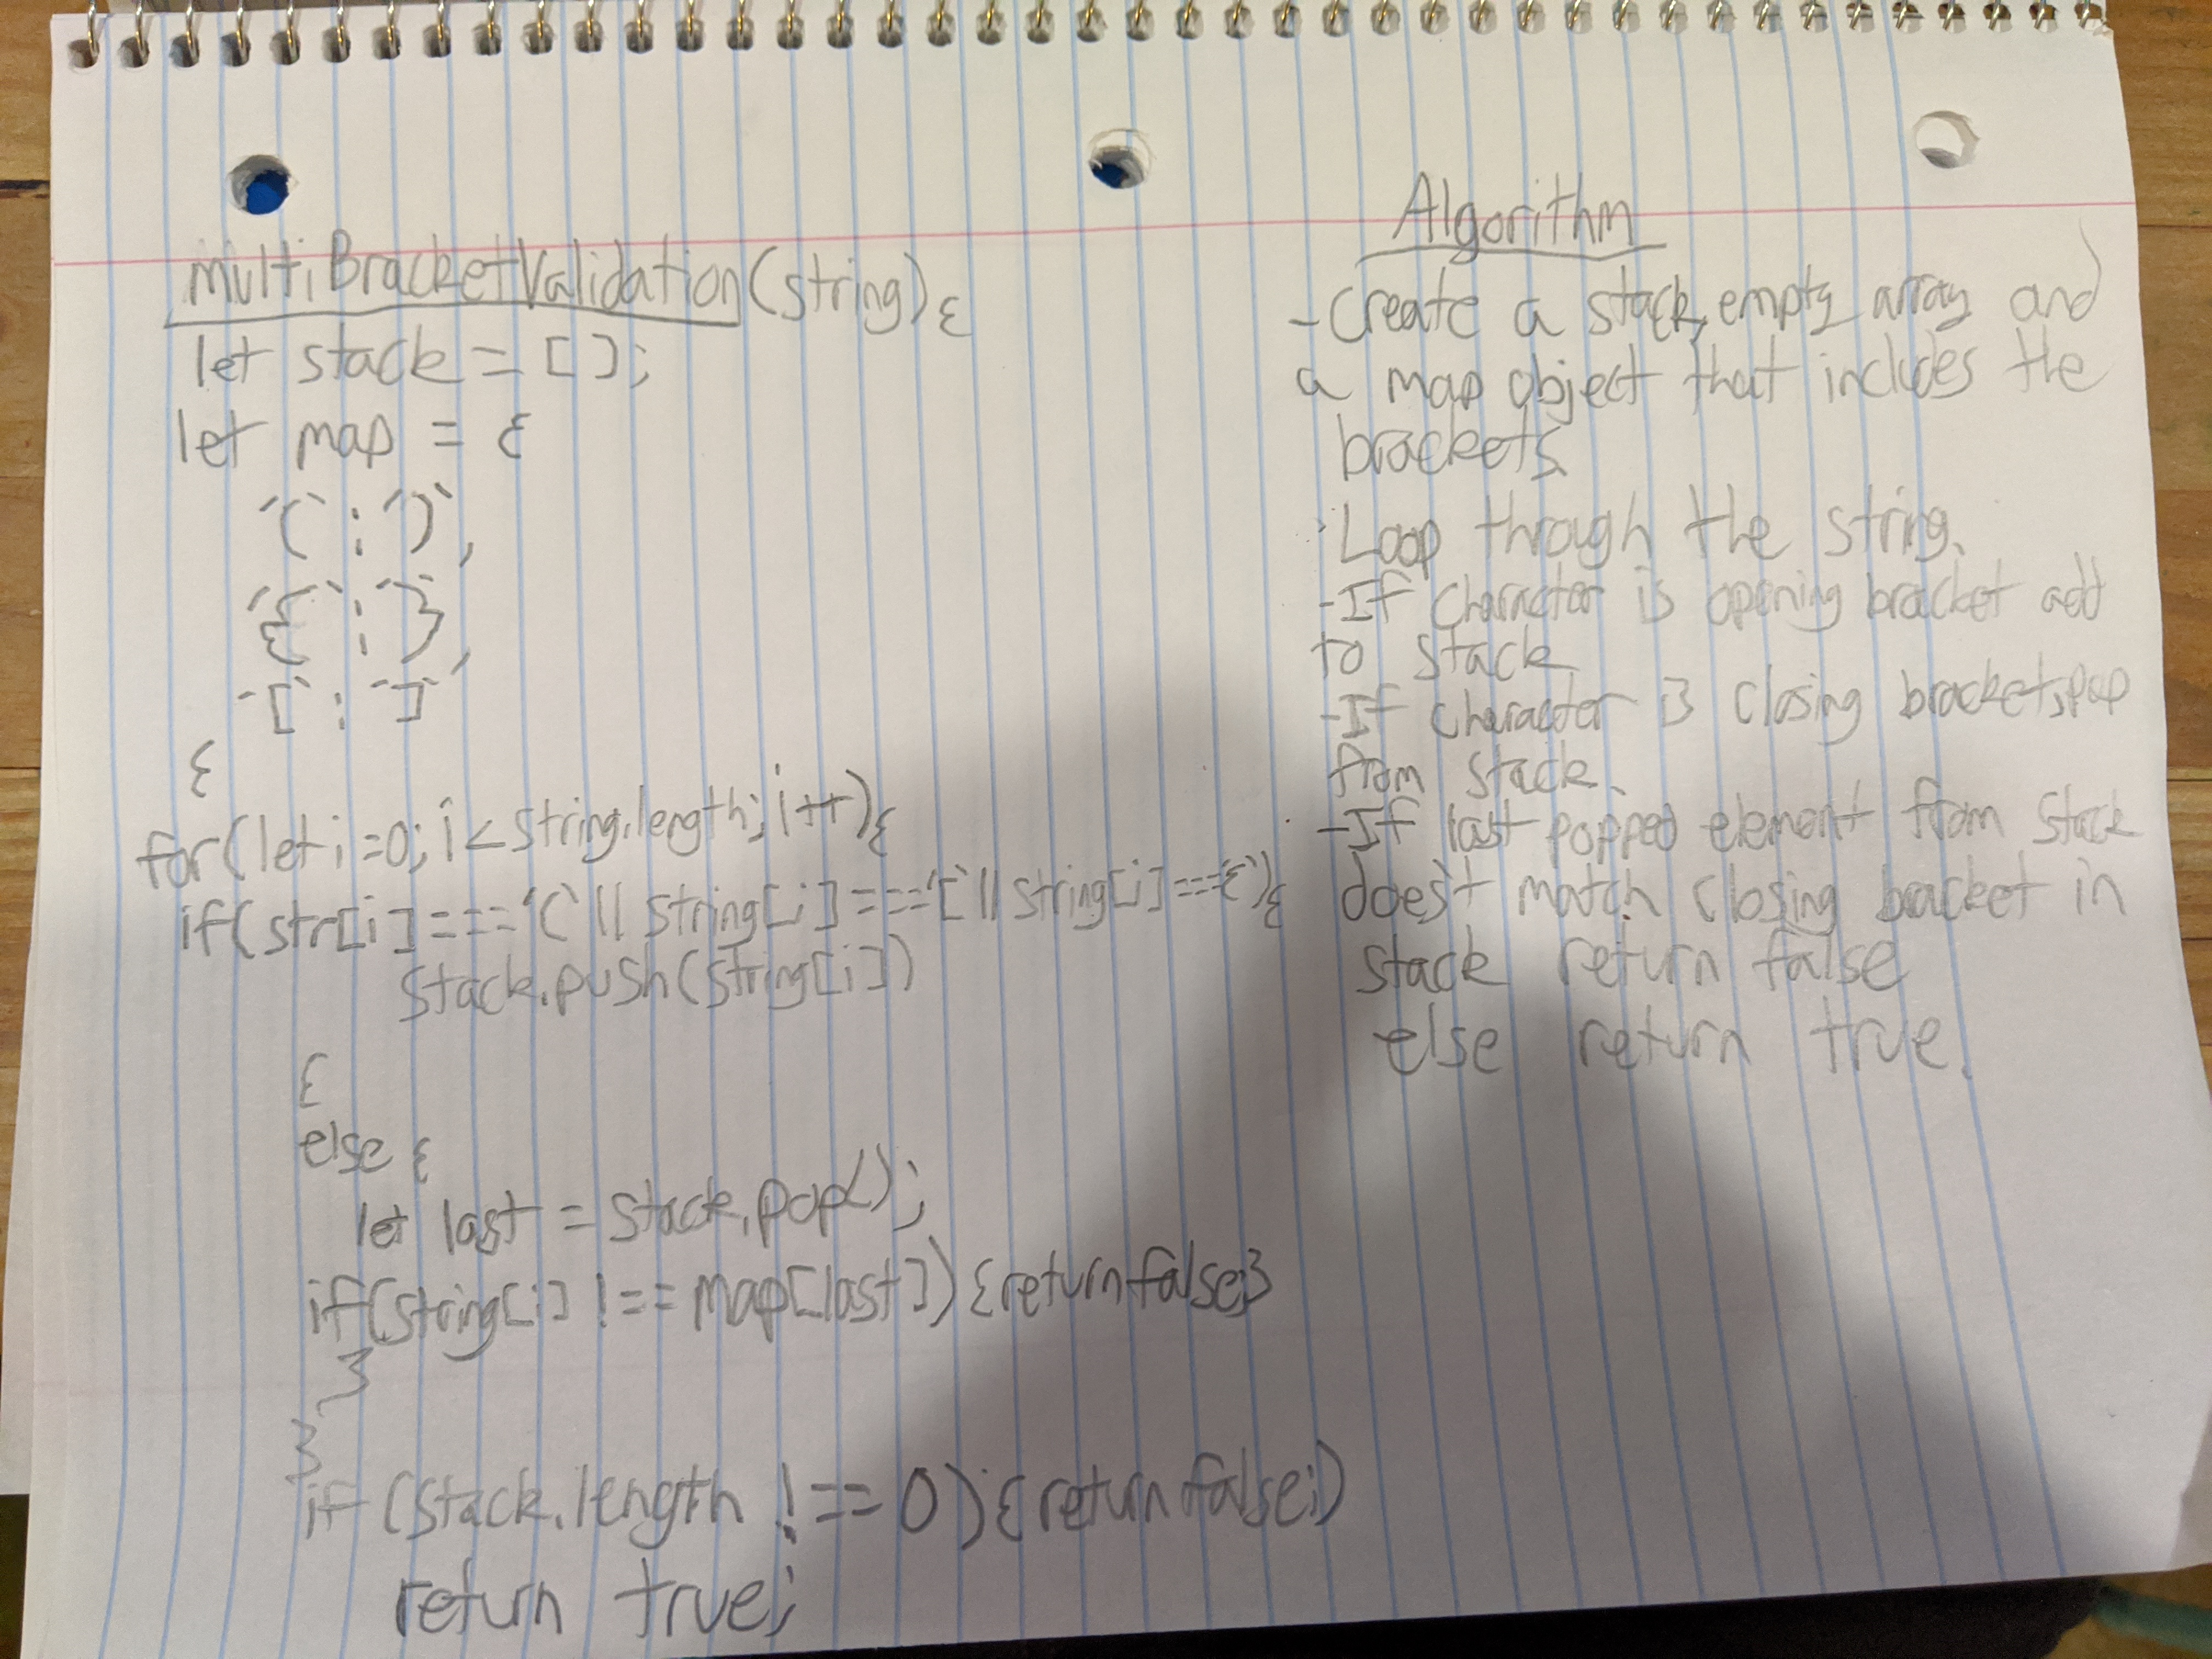 multiBracketValidation(string){
let stack = [];
let map = {
')':'(',
'}':'{',
']':'[',
}
for(let i=0; i<string.length; i++){
if(str[i] === '(' || string[i] === '[' || string[i] === '{'){
stack.push(string[i])
}
else {
let last = stack.pop();
if(string[i] !== map[last]){return false}
}
}
if (stack.length !== 0){return false;)
return true;
Algorithm
- Create a stack, empty array and
a map object that includes the
brackets
- Loop through the string,
- If character is opening bracket add
to stack
- If character is closing bracket, pop
from stack.
- If last popped element from stack
does't match closing bracket in
stack return false
else return true.